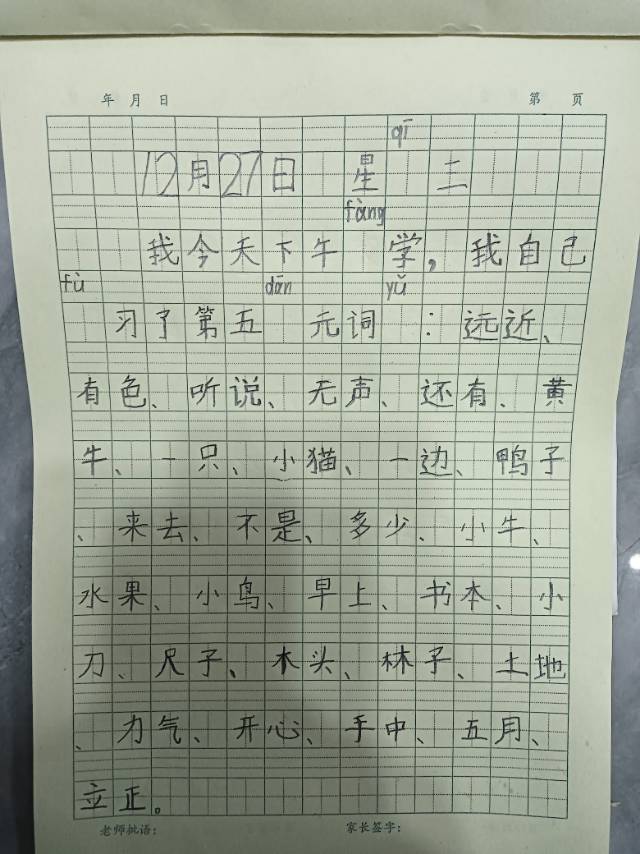 年 月 日 第 页
12月27日 星qī三
我今天下午fàng学，我自己
fù习了第五dān元词yǔ：远近、
有色、听说、无声、还有、黄
牛、一只、小猫、一边、鸭子
、来去、不是、多少、小牛、
水果、小鸟、早上、书本、小
刀、尺子、木头、林子、土地
、力气、开心、手中、五月、
立正。
老师批语： 家长签字：